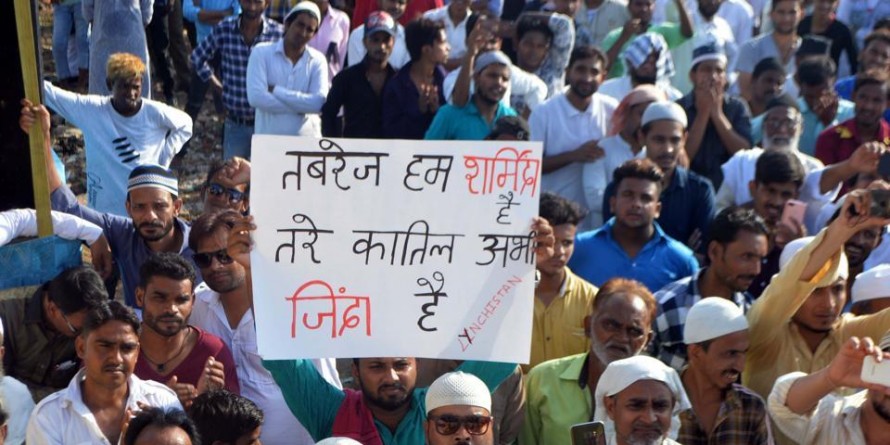 तबरेज हम शर्मिंदा
है
तेरे कातिल अभी
जिंदा है
LYNCHISTAN